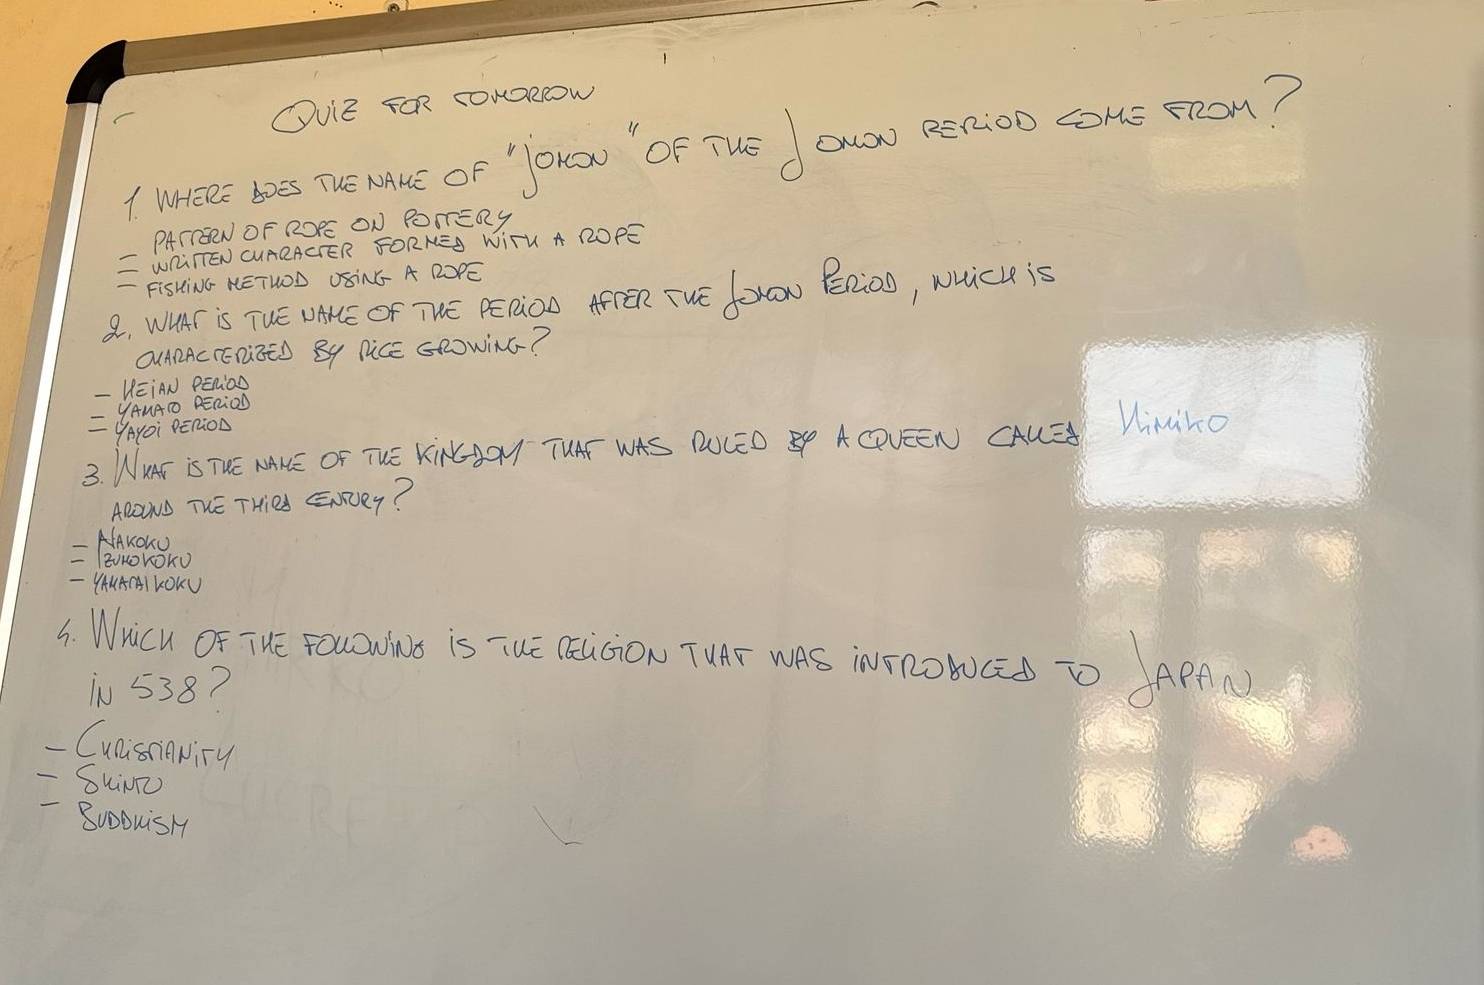 QUIZ FOR TOMORROW
1. WHERE DOES THE NAME OF "JOMON" OF THE JOMON PERIOD COME FROM?
- PATTERN OF ROPE ON POTTERY
- WRITTEN CHARACTER FORMED WITH A ROPE
- FISHING METHOD USING A ROPE
2. WHAT IS THE NAME OF THE PERIOD AFTER THE JOMON PERIOD, WHICH IS
CHARACTERIZED BY RICE GROWING?
- HEIAN PERIOD
- YAMATO PERIOD
- YAYOI PERIOD
3. WHAT IS THE NAME OF THE KINGDOM THAT WAS RULED BY A QUEEN CALLED HIMIKO
AROUND THE THIRD CENTURY?
- NAKOKU
- IZUMOKOKU
- YAMATAIKOKU
4. WHICH OF THE FOLLOWING IS THE RELIGION THAT WAS INTRODUCED TO JAPAN
IN 538?
- CHRISTIANITY
- SHINTO
- BUDDHISM